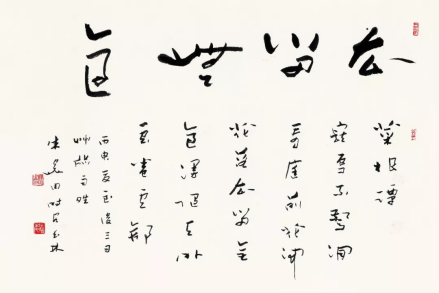 去留無意
菜根譚
寵辱不驚閒
看庭前花開
花落去留無
意漫隨天外
雲卷雲舒
丙申夏至後三日